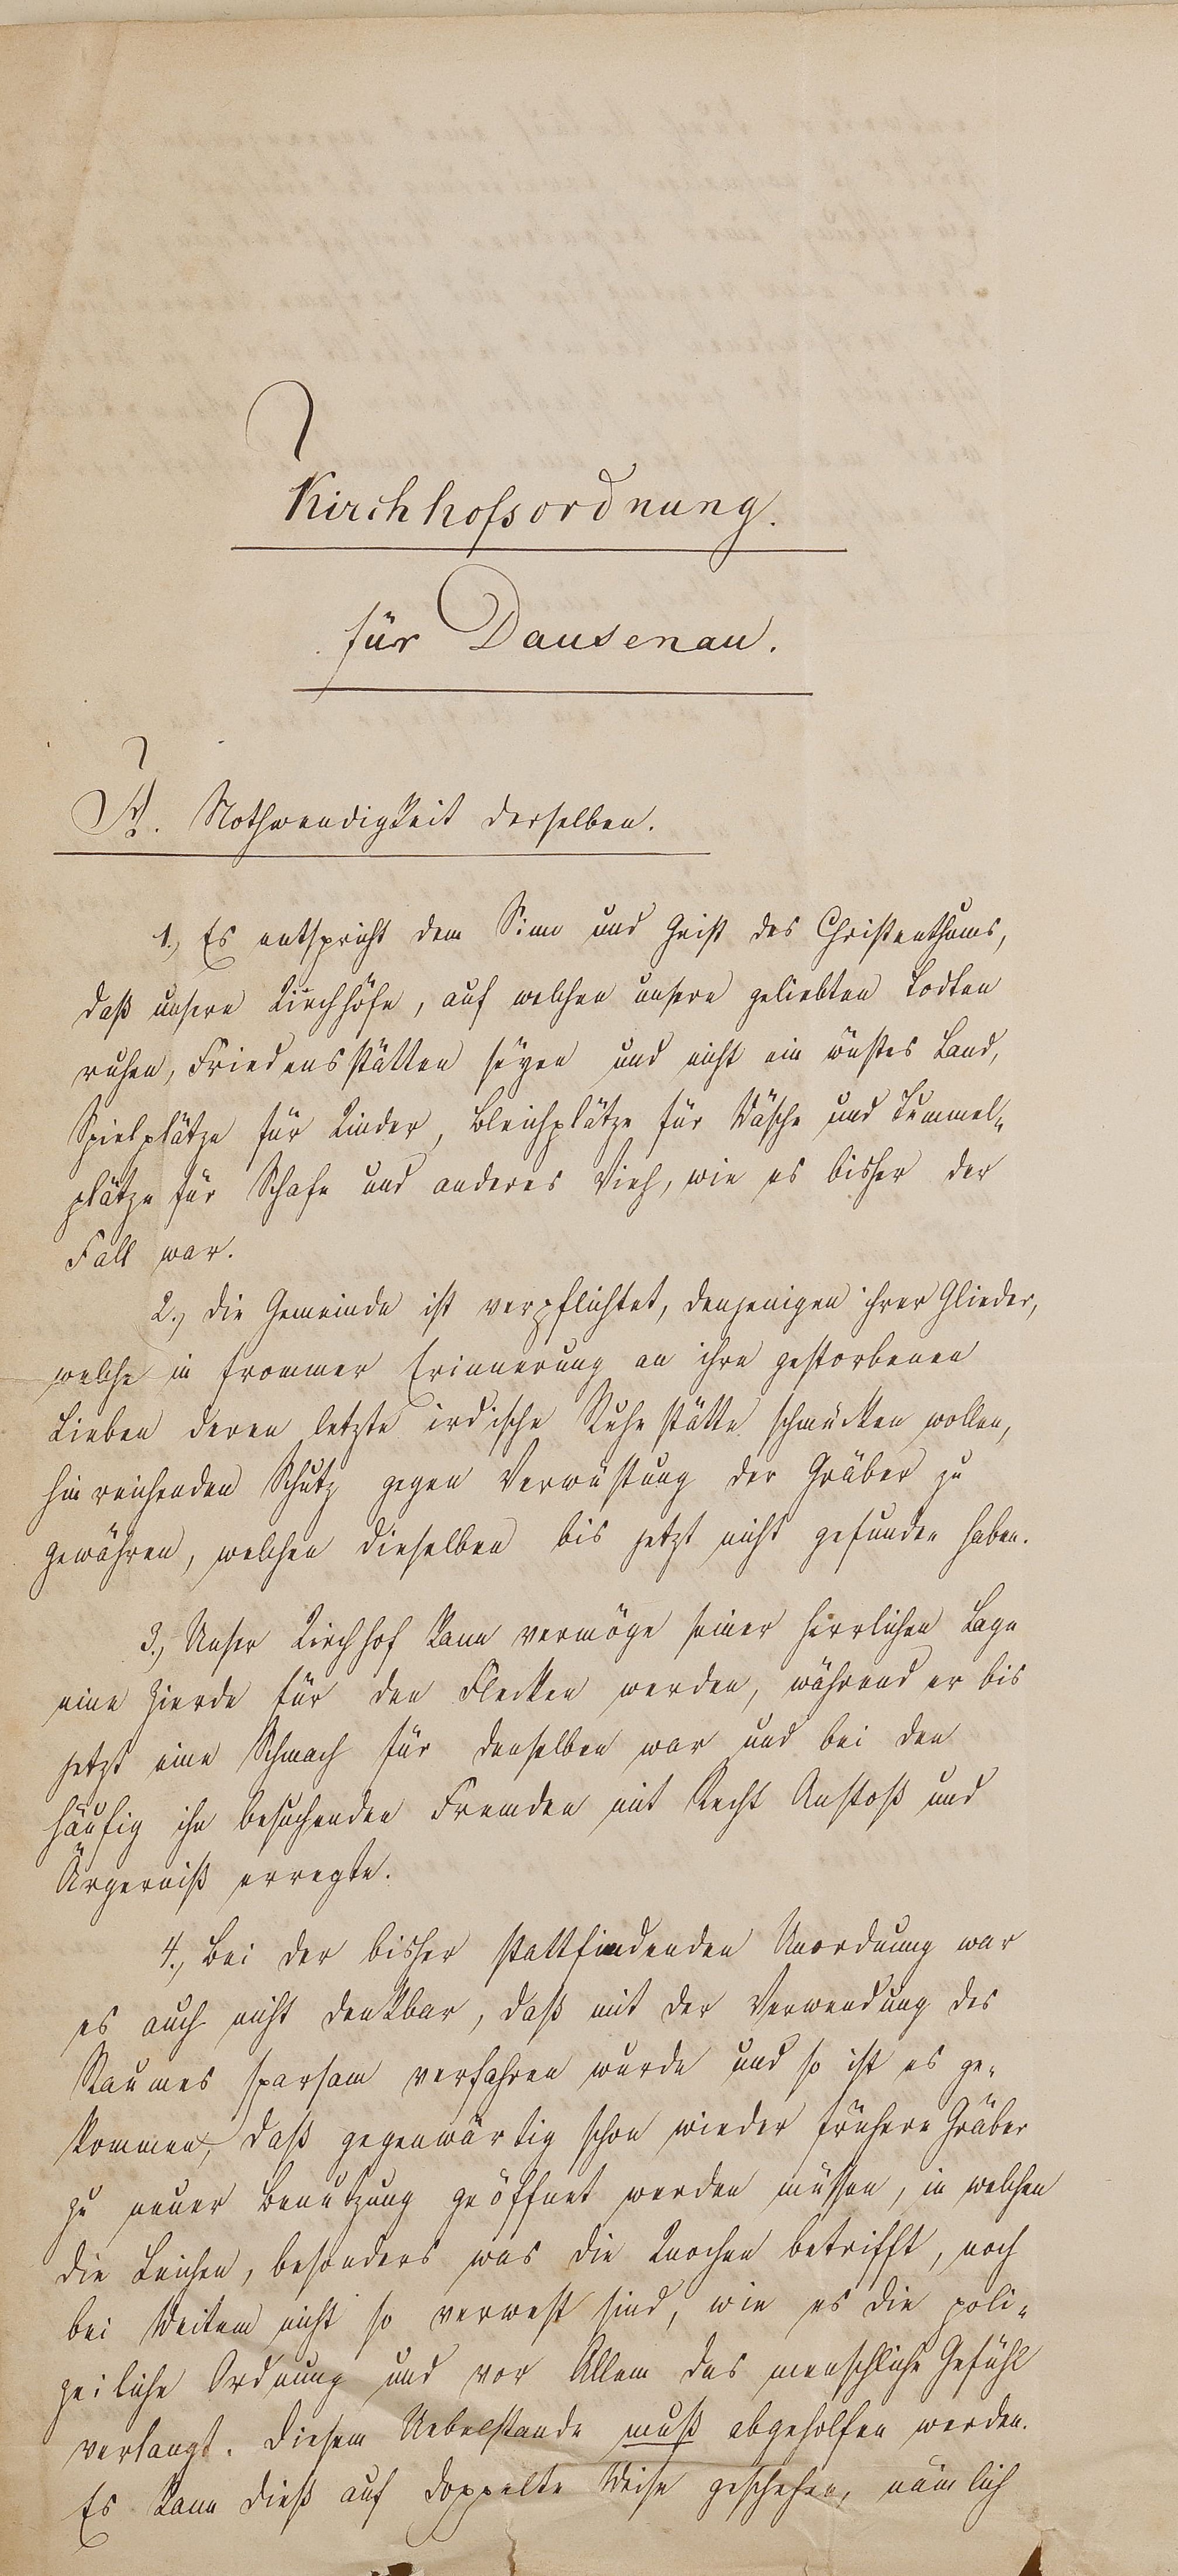 Kirchhofsordnung.
für Dausenau.
A. Nothwendigkeit derselben.
1., Es entspricht dem Sinn und Geist des Christenthums,
daß unsere Kirchhöfe, auf welchen unsere geliebten Todten
ruhen, Friedensstätten seyen und nicht ein wüstes Land,
Spielplätze für Kinder, Bleichplätze für Wäsche und Tummel-
plätze für Schafe und anderes Vieh, wie es bisher der
Fall war.
2., Die Gemeinde ist verpflichtet, denjenigen ihrer Glieder,
welche in frommer Erinnerung an ihre gestorbenen
Lieben deren letzte irdische Ruhestätte schmücken wollen,
hinreichenden Schutz gegen Verwüstung der Gräber zu
gewähren, welchen dieselben bis jetzt nicht gefunden haben.
3., Unser Kirchhof kann vermöge seiner herrlichen Lage
eine Zierde für den Flecken werden, während er bis
jetzt eine Schmach für denselben war und bei den
häufig ihn besuchenden Fremden mit Recht Anstoß und
Ärgerniß erregte.
4., Bei der bisher stattfindenden Unordnung war
es auch nicht denkbar, daß mit der Verwendung des
Raumes sparsam verfahren wurde und so ist es ge-
kommen, daß gegenwärtig schon wieder frühere Gräber
zu neuer Benutzung geöffnet werden müssen, in welchen
die Leichen, besonders was die Knochen betrifft, noch
bei Weitem nicht so verwest sind, wie es die poli-
zeiliche Ordnung und vor Allem das menschliche Gefühl
verlangt. Diesem Uebelstande muß abgeholfen werden.
Es kann dieß auf doppelte Weise geschehen, nämlich